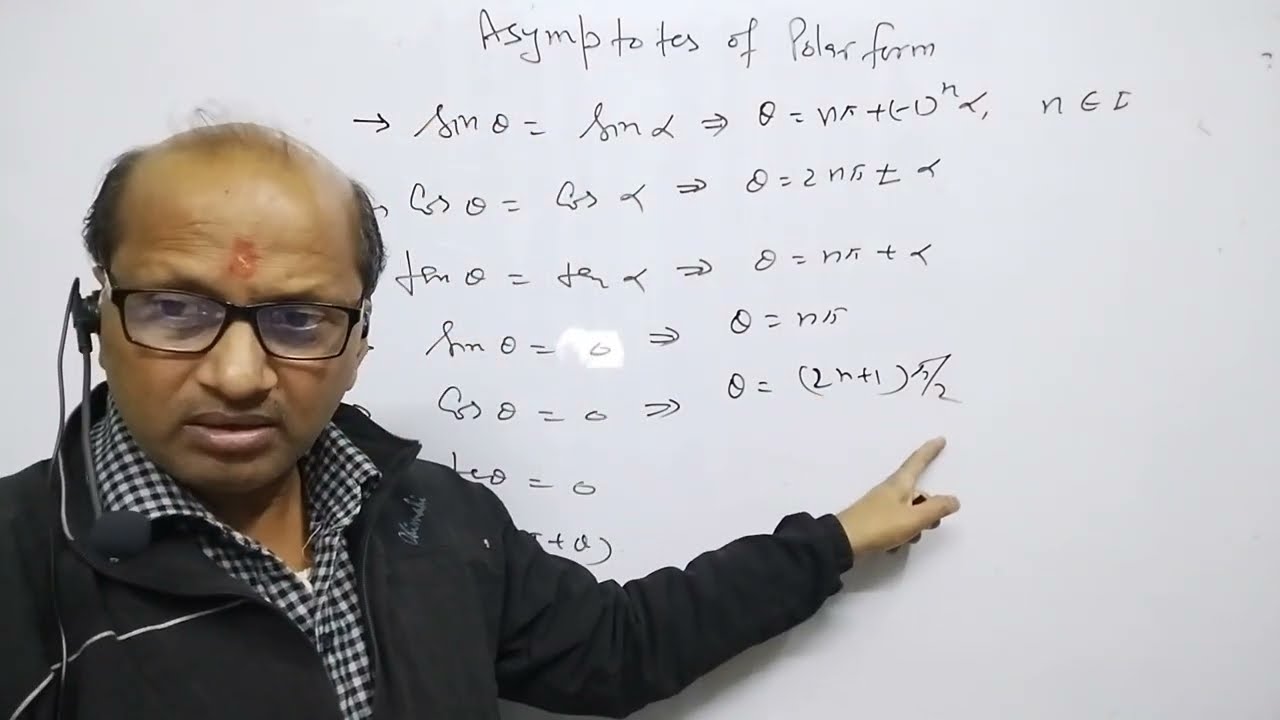 Asymptotes of Polar form
→ Sin θ = Sin α ⇒ θ = nπ + (-1)ⁿ α, n ∈ I
Cos θ = Cos α ⇒ θ = 2nπ ± α
tan θ = tan α ⇒ θ = nπ + α
Sin θ = 0 ⇒ θ = nπ
Cos θ = 0 ⇒ θ = (2n+1) π/2
θ = 0
+ θ)